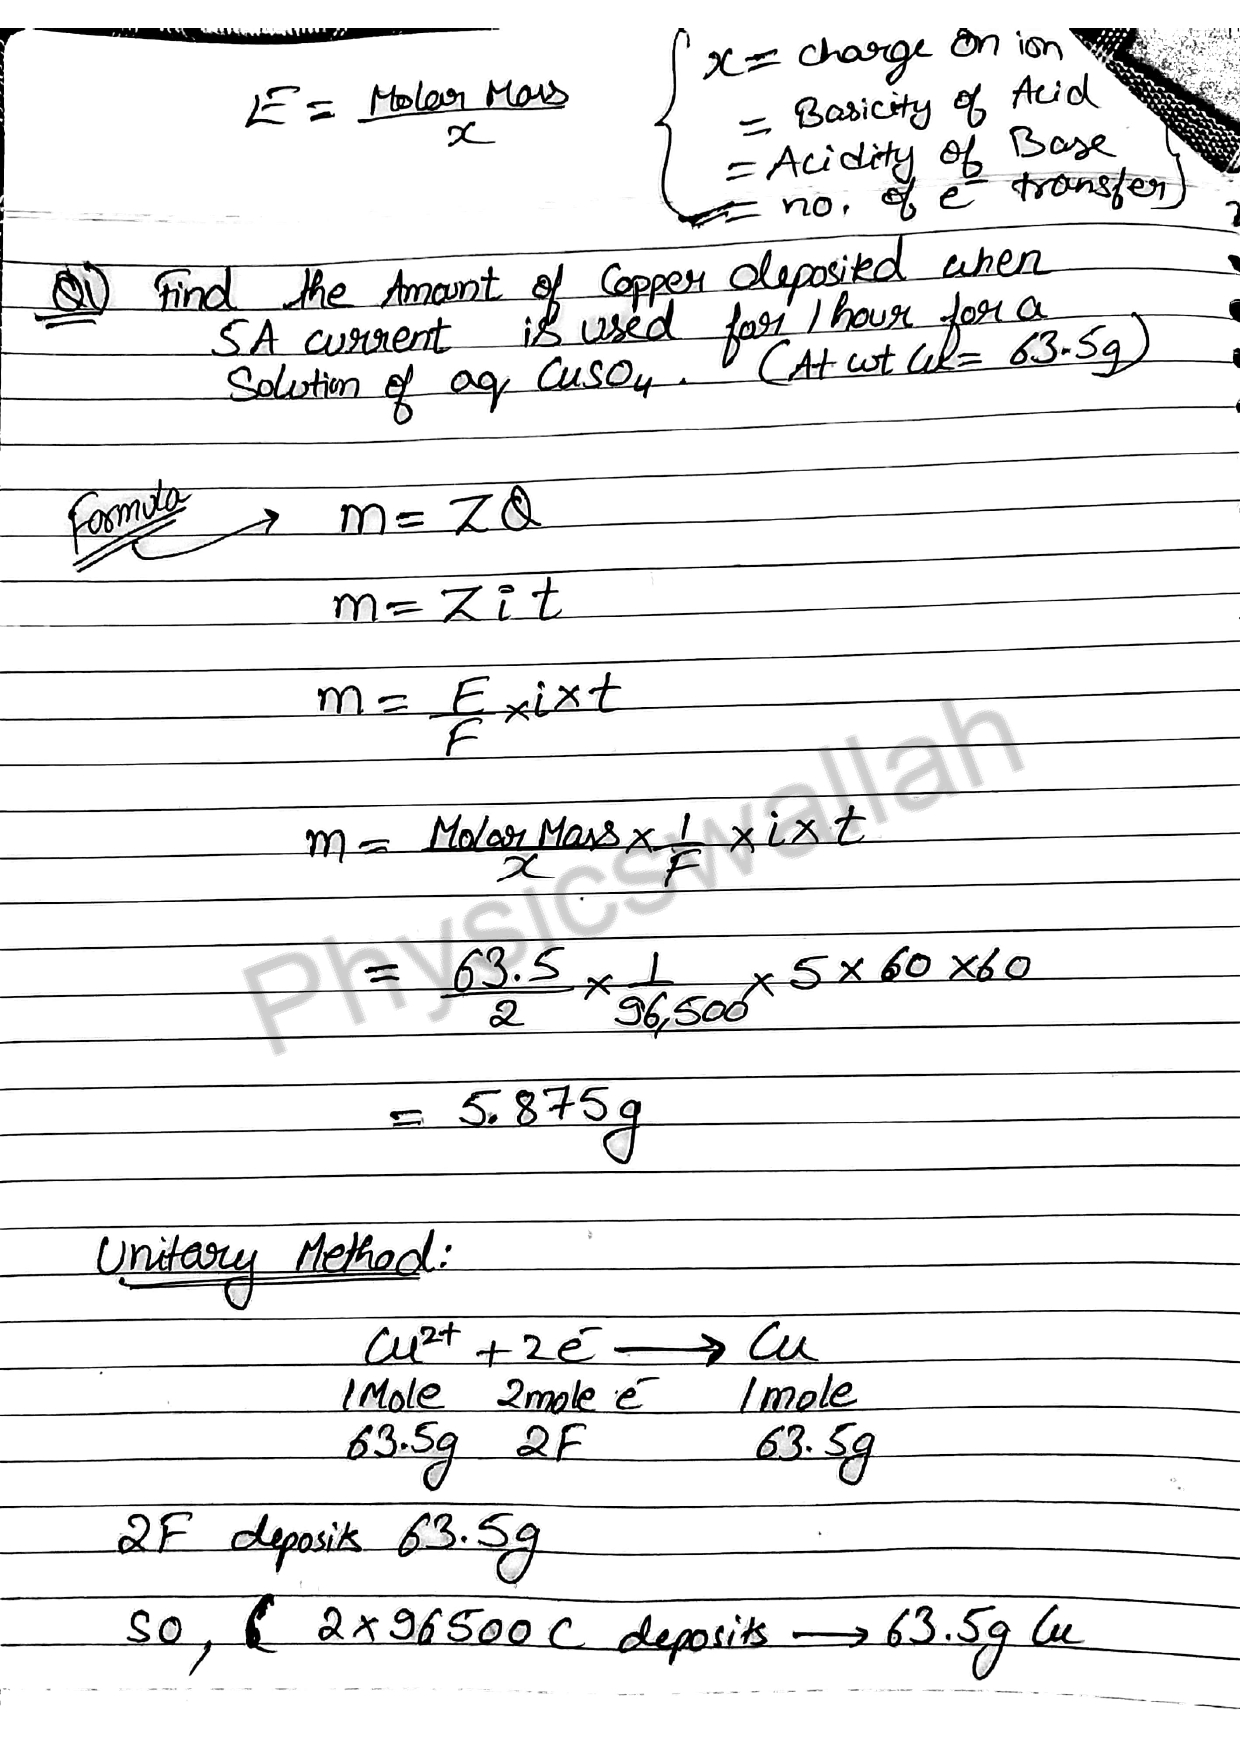 E = Molar Mass / x
{ x = charge on ion
= Basicity of Acid
= Acidity of Base
= no. of e⁻ transfer }
Q1) Find the Amount of Copper deposited when
5A current is used for 1 hour for a
Solution of aq CuSO₄. (At wt Cu = 63.5g)
Formula → m = ZQ
m = Z i t
m = E/F × i × t
m = Molar Mass / x × 1/F × i × t
= 63.5/2 × 1/96,500 × 5 × 60 × 60
= 5.875g
Unitary Method:
Cu²⁺ + 2e⁻ → Cu
1 Mole 2 mole e⁻ 1 mole
63.5g 2F 63.5g
2F deposits 63.5g
so, 2×96500 C deposits → 63.5g Cu
Physicswallah